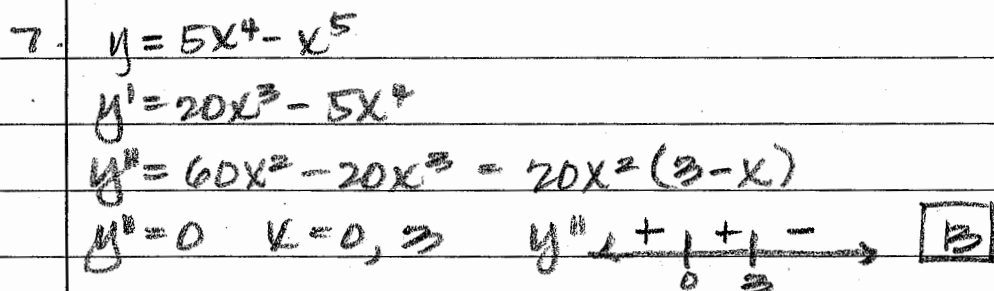 7. y = 5x⁴ - x⁵
y' = 20x³ - 5x⁴
y" = 60x² - 20x³ = 20x²(3-x)
y" = 0 x = 0, 3 y" + + - B
0 3